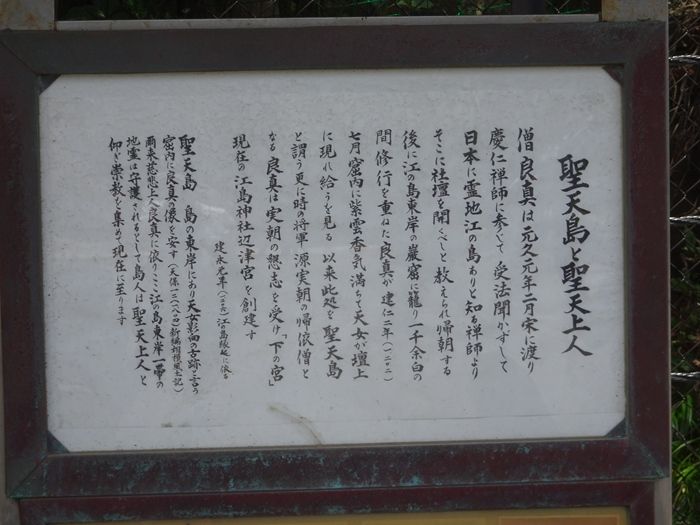 聖天島と聖天上人
僧良真は元久元年二月宋に渡り
慶仁禅師に参じて受法聞かずして
日本に霊地江の島ありと知る禅師より
そこに社壇を開くべしと教えられ帰朝する
後に江の島東岸の巌窟に籠り一千余白の
間修行を重ねた良真が建仁二年(一二〇二)
七月窟内に紫雲香気満ちて天女が壇上
に現れ給うを見る 以来此処を聖天島
と謂う更に時の将軍源実朝の帰依僧と
なる良真は実朝の懇志を受け「下の宮」
現在の江島神社辺津宮を創建す
建永元年(一二〇六)江の島縁起に依る
聖天島 島の東岸にあり天女影向の古跡と言う
窟内に良真の像を安す(天保一二(一八四一)新編相模風土記)
爾来慈悲上人良真に依りここ江の島東岸一帯の
地霊は守護されるとして島人は聖天上人と
仰ぎ崇敬を集めて現在に至ります